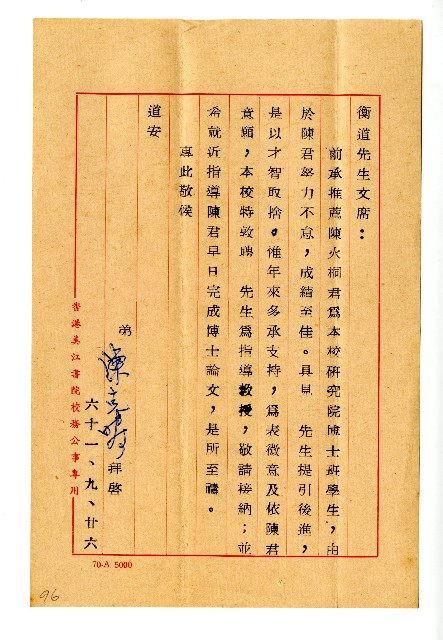 衡道先生文席：
前承推薦陳火桐君爲本校研究院博士班學生，由
於陳君努力不怠，成績至佳。具見　先生提引後進，
是以才智取捨。惟年來多承支持，爲表微意及依陳君
意願，本校特敦聘　先生爲指導教授，敬請接納；並
希就近指導陳君早日完成博士論文，是所至禱。
專此敬候
道安
弟　陳　拜啓
六十一、九、廿六
香港吳江書院校務公事專用
70-A 5000
96